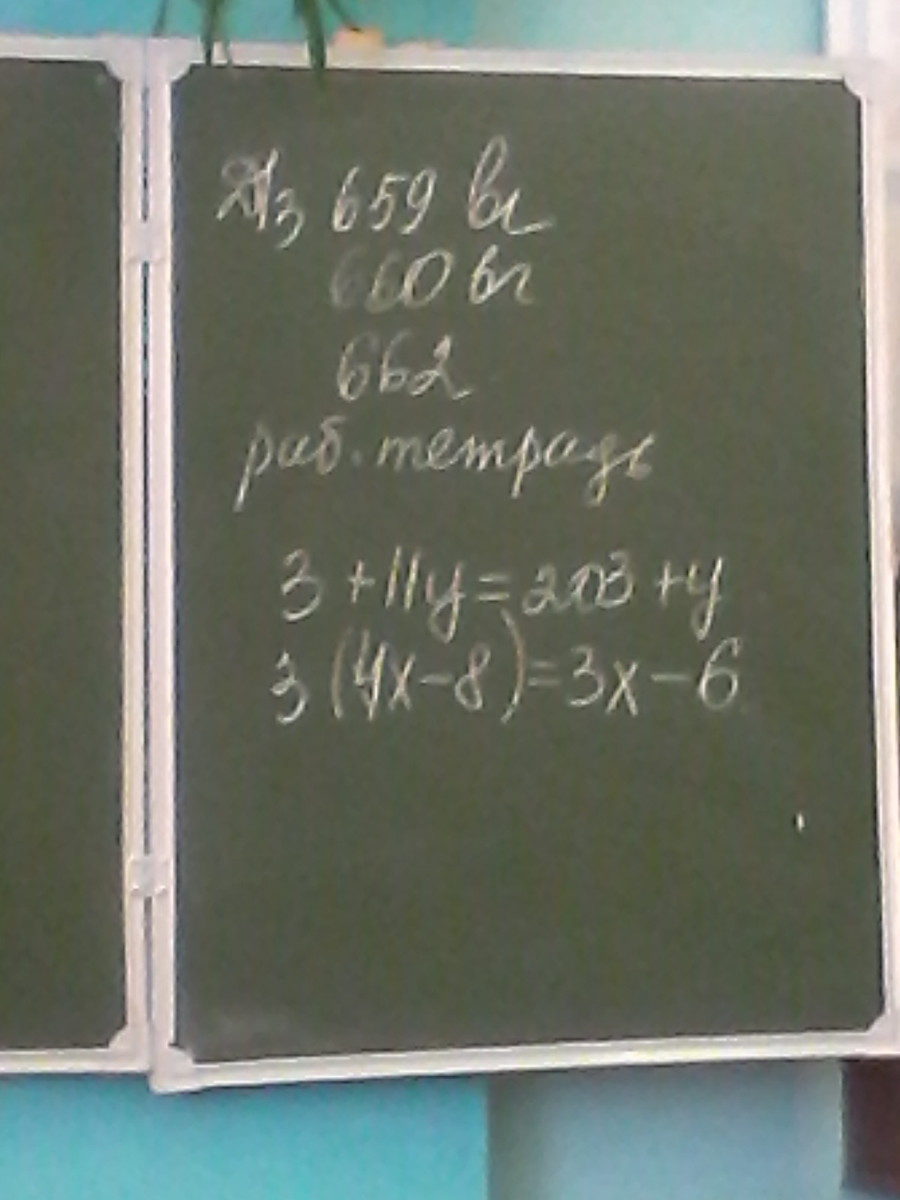 Дз 659 вг
660 вг
662
раб. тетрадь
3 + 11y = 203 + y
3 (4x - 8) = 3x - 6